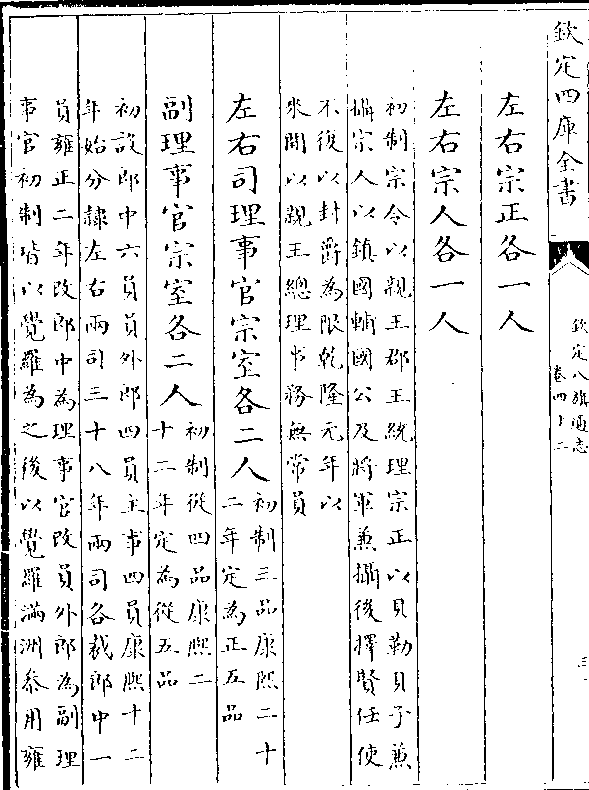 欽定四庫全書
欽定八旗通志
卷四十二
左右宗正各一人
左右宗人各一人
初制宗令以親王郡王統理宗正以貝勒貝子兼
攝宗人以鎮國輔國公及將軍兼攝後擇賢任使
不復以封爵為限乾隆元年以
來間以親王總理事務無常員
左右司理事官宗室各二人
初制三品康熙二十
二年定為正五品
副理事官宗室各二人
初制從四品康熙二
十二年定為從五品
初設郎中六員員外郎四員主事四員康熙十二
年始分隸左右兩司三十八年兩司各裁郎中一
員雍正二年改郎中為理事官改員外郎為副理
事官初制皆以覺羅為之後以覺羅滿洲叅用雍